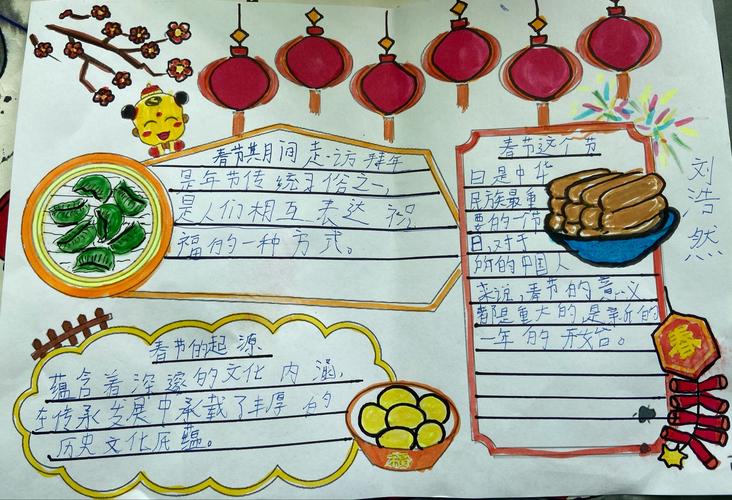 春节其月间走访拜年
是年节传统习俗之一,
是人们相互表达祝
福的一种方式。
春节的起源
蕴含着深邃的文化内涵,
在传承发展中承载了丰厚的
历史文化底蕴。
春节这个节
日是中华
民族最重
要的一节
日,对于
所的中国人
来说,春节的意义
都是重大的是新的
一年的开始。
刘浩然
春